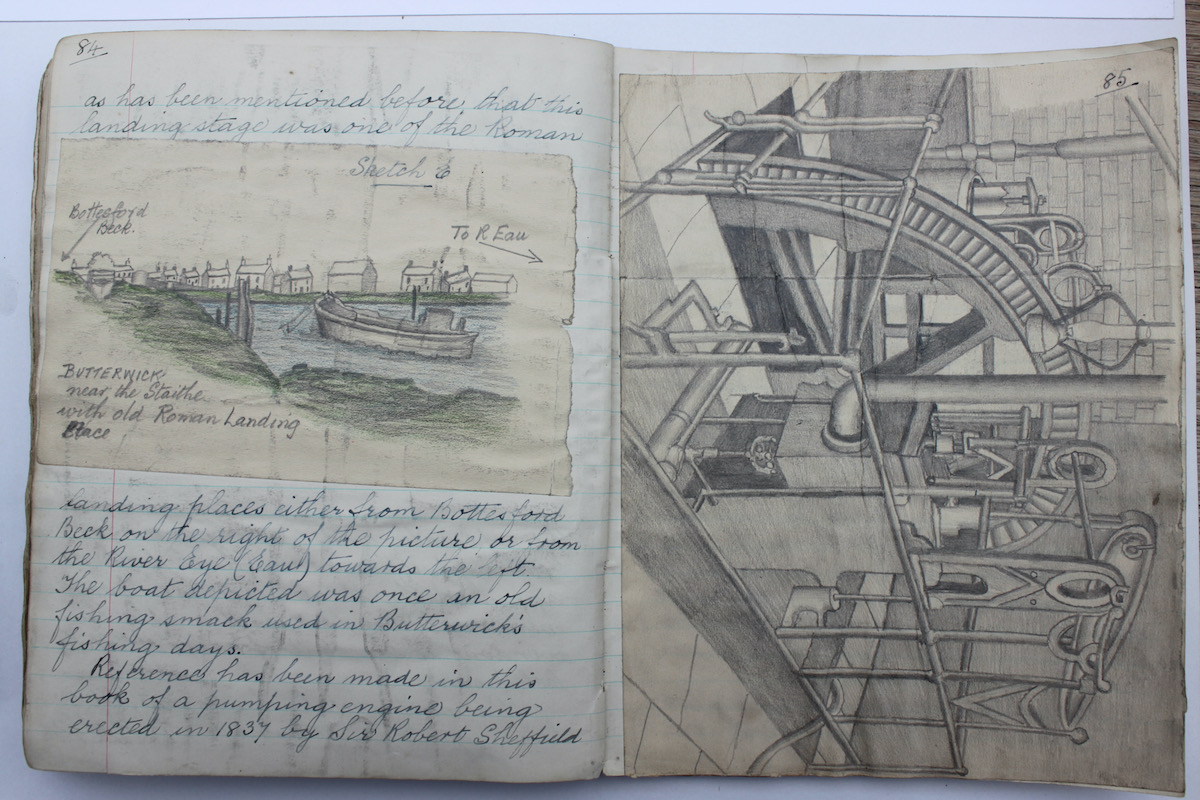 84
as has been mentioned before, that this
landing stage was one of the Roman
Sketch 6
Bottesford
Beck.
To R Eau
BUTTERWICK
near the Staithe
with old Roman Landing
Place
landing places either from Bottesford
Beck on the right of the picture or from
the River Eye (Eau) towards the left
The boat depicted was once an old
fishing smack used in Butterwick's
fishing days.
Reference has been made in this
book of a pumping engine being
erected in 1837 by Sir Robert Sheffield
85